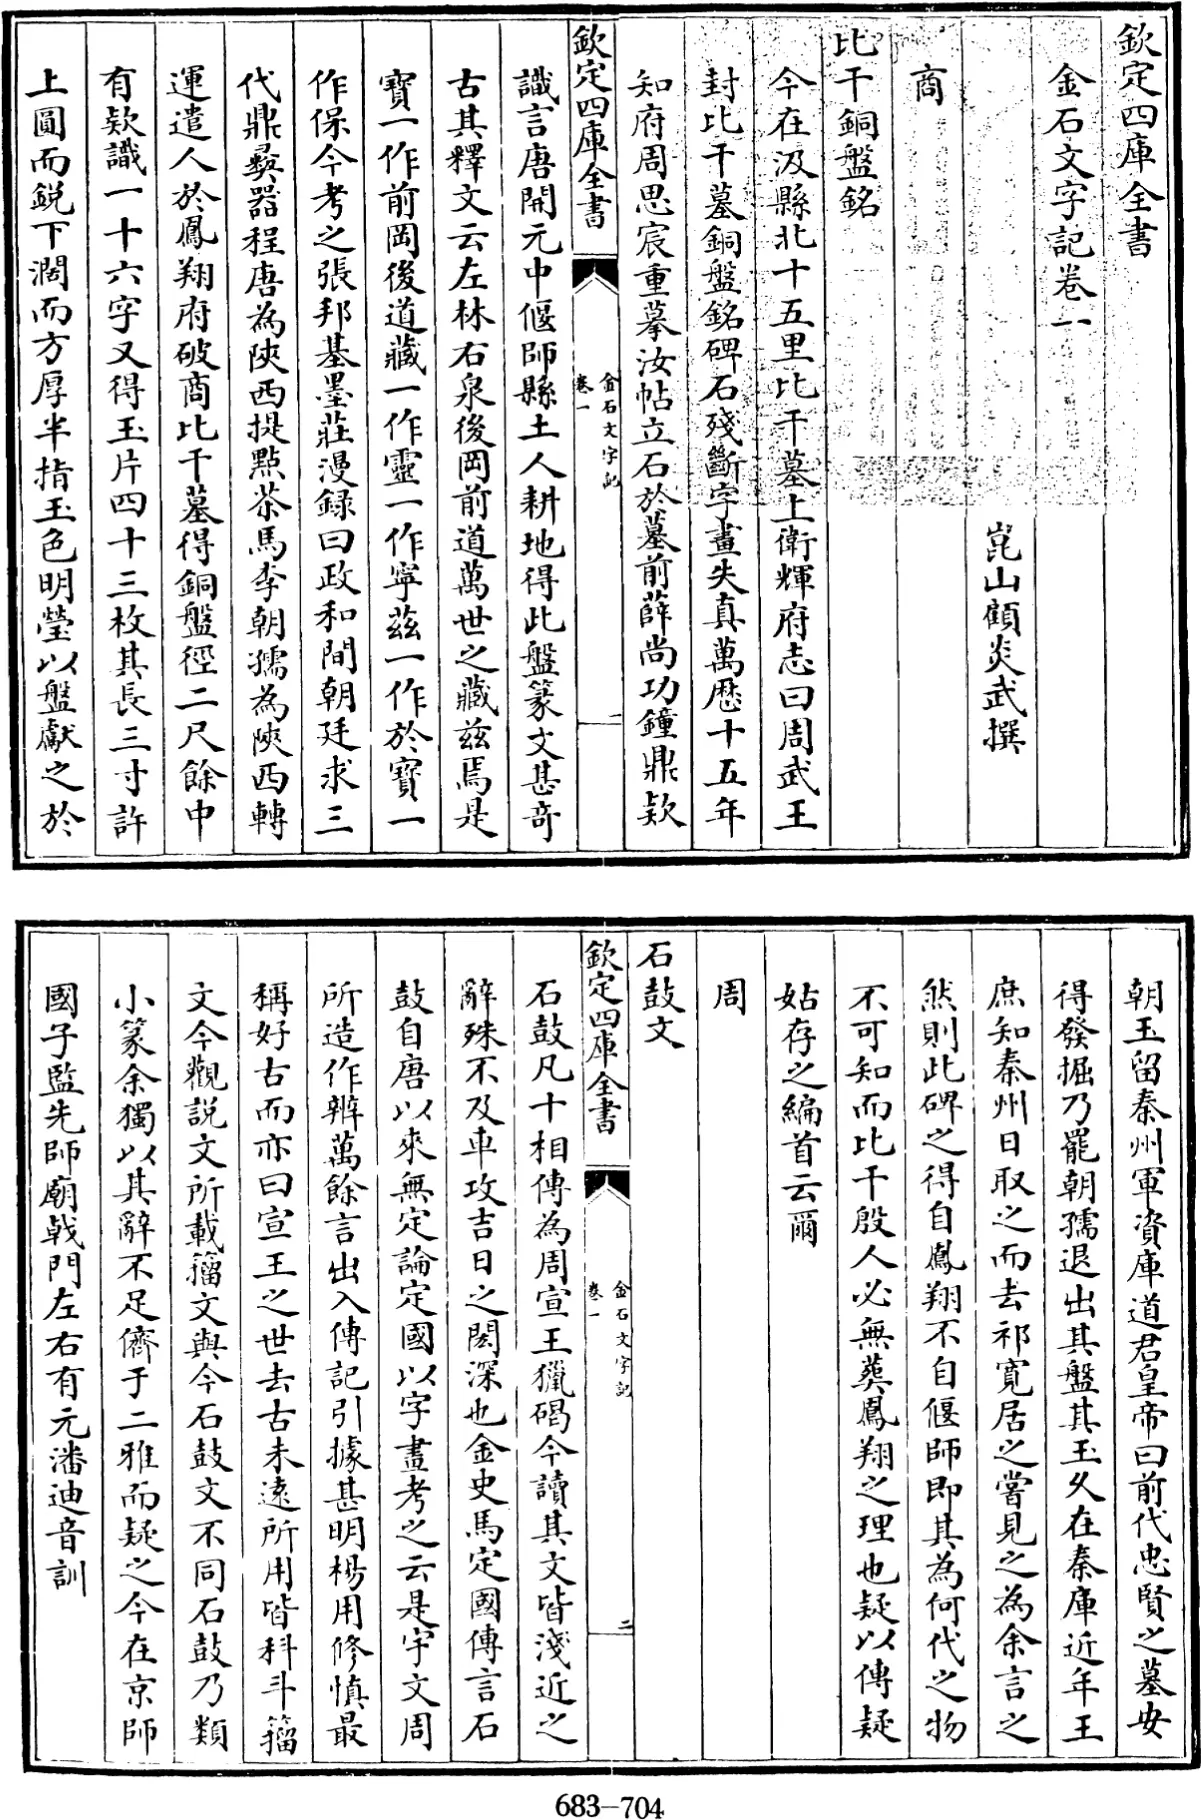 欽定四庫全書
金石文字記卷一
崑山顧炎武撰
商
比干銅盤銘
今在汲縣北十五里比干墓上衛輝府志曰周武王
封比干墓銅盤銘碑石殘斷字畫失真萬歷十五年
知府周思宸重摹汝帖立石於墓前薛尚功鐘鼎欵
欽定四庫全書
金石文字記
卷一
一
識言唐開元中偃師縣土人耕地得此盤篆文甚奇
古其釋文云左林右泉後岡前道萬世之藏兹焉是
寶一作前岡後道藏一作靈一作寧茲一作於寶一
作保今考之張邦基墨莊漫録曰政和間朝廷求三
代鼎彝器程唐為陜西提點茶馬李朝孺為陜西轉
運遣人於鳳翔府破商比干墓得銅盤徑二尺餘中
有欵識一十六字又得玉片四十三枚其長三寸許
上圓而鋭下濶而方厚半指玉色明瑩以盤獻之於
朝玉留秦州軍資庫道君皇帝曰前代忠賢之墓安
得發掘乃罷朝孺退出其盤其玉久在秦庫近年王
庶知秦州日取之而去祁寛居之嘗見之為余言之
然則此碑之得自鳳翔不自偃師即其為何代之物
不可知而比干殷人必無葬鳳翔之理也疑以傳疑
姑存之編首云爾
周
石鼓文
欽定四庫全書
金石文字記
卷一
二
石鼓凡十相傳為周宣王獵碣今讀其文皆淺近之
辭殊不及車攻吉日之閎深也金史馬定國傳言石
鼓自唐以來無定論定國以字畫考之云是宇文周
所造作辨萬餘言出入傳記引據甚明楊用修慎最
稱好古而亦曰宣王之世去古未遠所用皆科斗籀
文今觀説文所載籀文與今石鼓文不同石鼓乃類
小篆余獨以其辭不足儕于二雅而疑之今在京師
國子監先師廟㦸門左右有元潘迪音訓
683-704